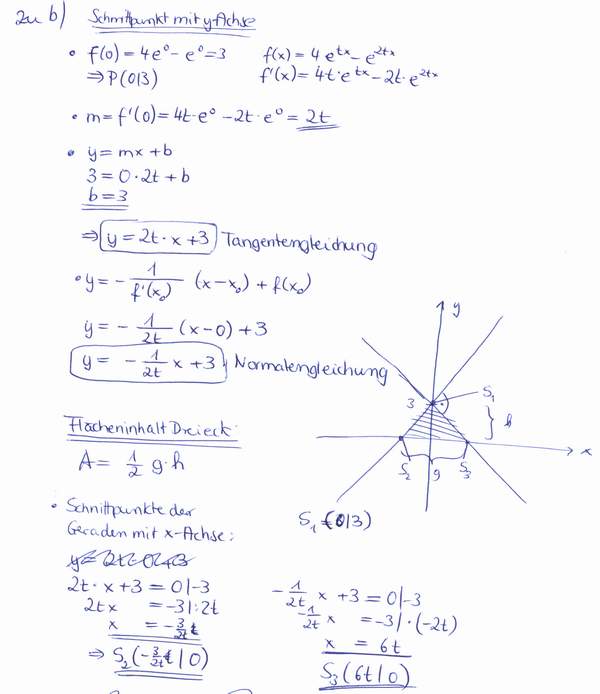 zu b) Schnittpunkt mit y-Achse
• f(0) = 4e⁰ - e⁰ = 3 f(x) = 4 e^{tx} - e^{2tx}
⇒ P(0|3) f'(x) = 4t · e^{tx} - 2t · e^{2tx}
• m = f'(0) = 4t · e⁰ - 2t · e⁰ = 2t
• y = mx + b
3 = 0 · 2t + b
b = 3
⇒ y = 2t · x + 3 Tangentengleichung
• y = - 1/f'(x₀) (x - x₀) + f(x₀)
y = - 1/2t (x - 0) + 3
y = - 1/2t x + 3 Normalengleichung
y
3
S₁
h
x
S₂
g
S₃
S₁ (0|3)
Flächeninhalt Dreieck:
A = 1/2 g · h
• Schnittpunkte der
Geraden mit x-Achse:
2t · x + 3 = 0 |-3
2tx = -3 |: 2t
x = - 3/2t
⇒ S₂ (- 3/2t | 0)
- 1/2t x + 3 = 0 |-3
- 1/2t x = -3 | · (-2t)
x = 6t
S₃ (6t | 0)